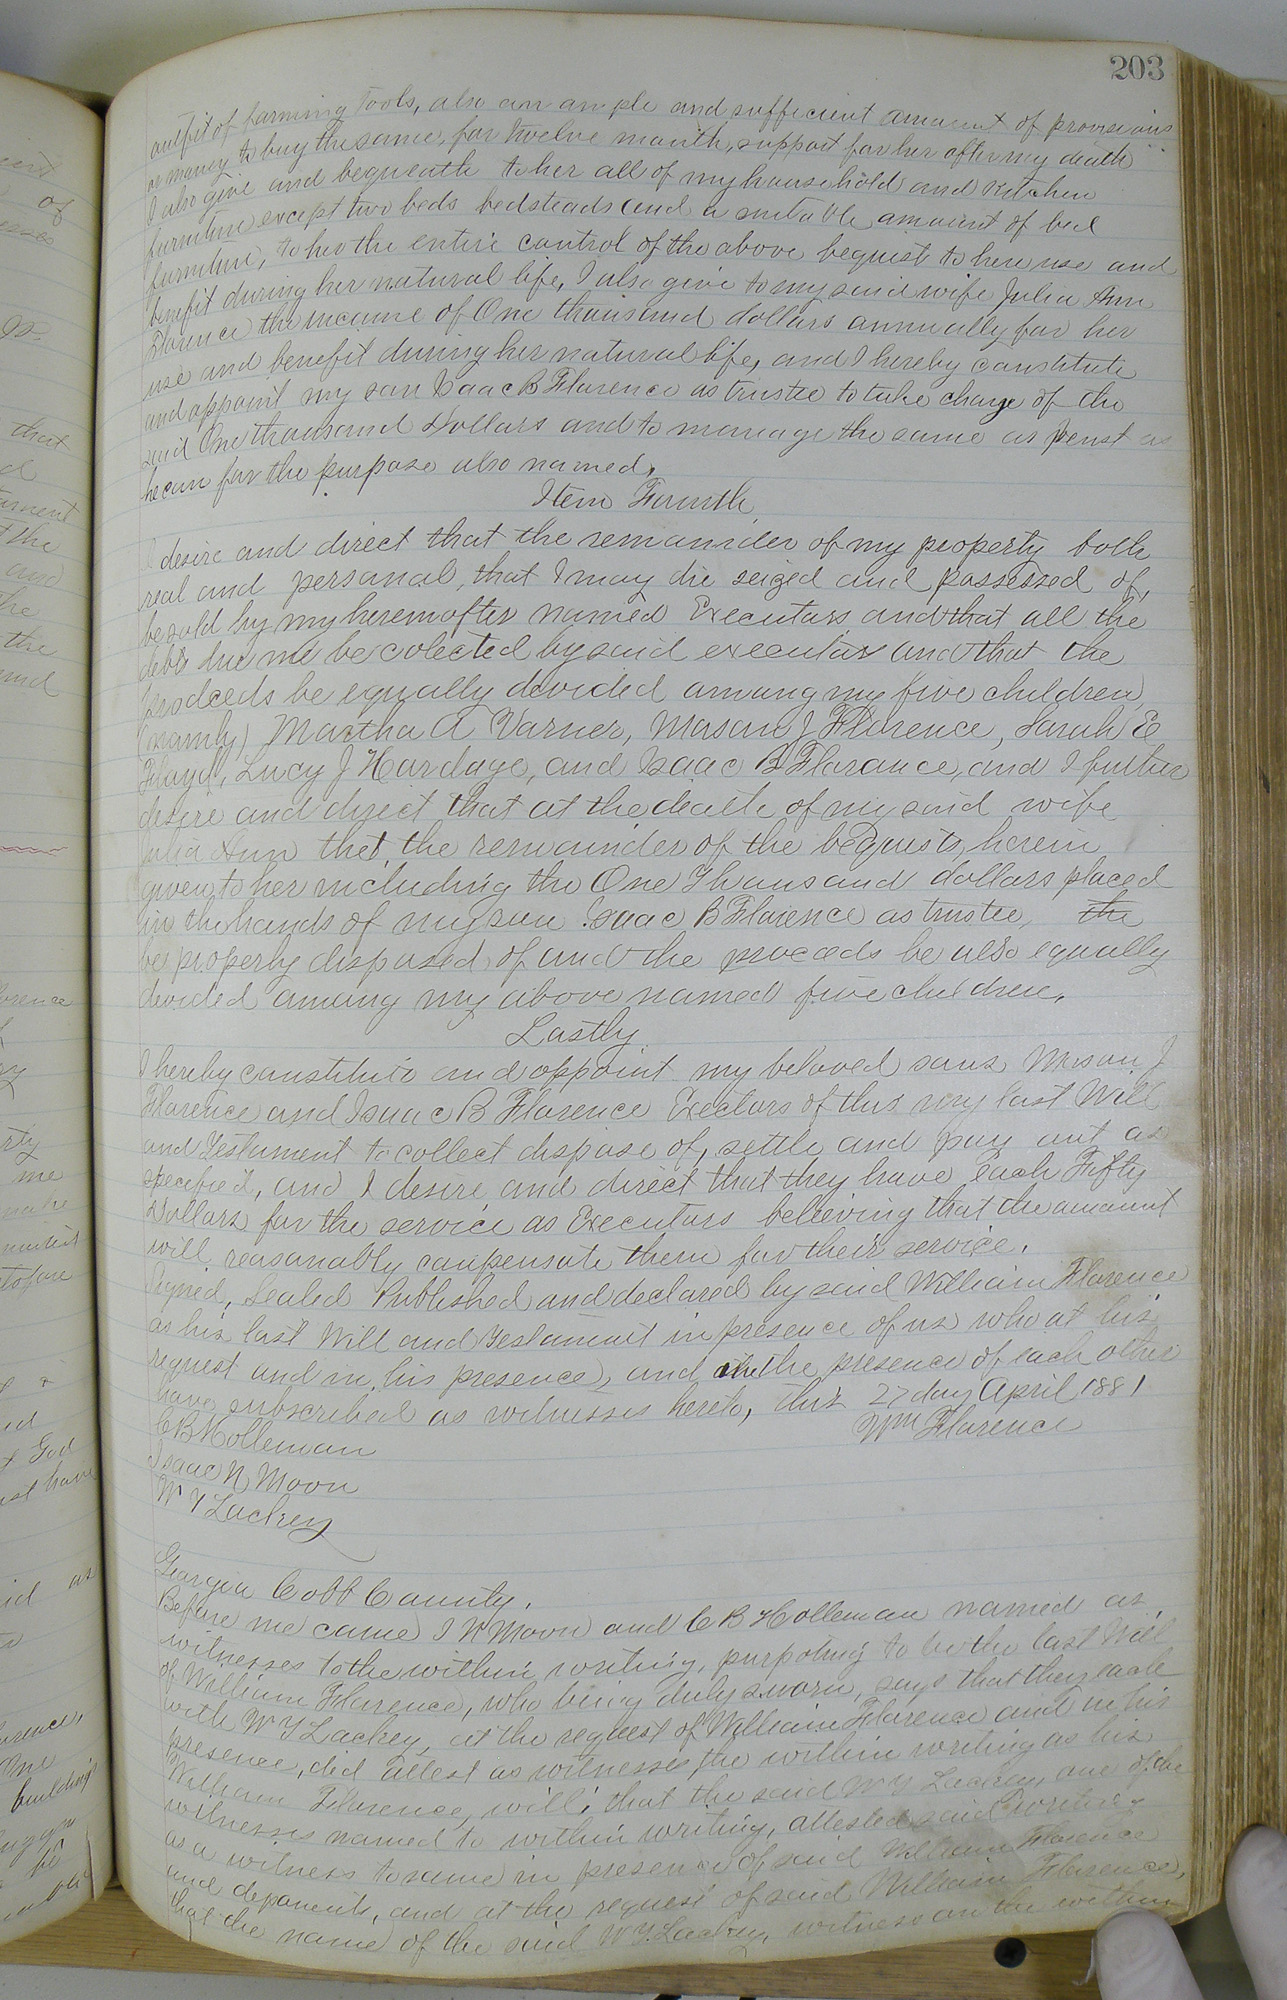 203
outfit of farming tools, also an ample and sufficient amount of provisions
or money to buy the same, for twelve month, support for her after my death
I also give and bequeath to her all of my household and Kitchen
furniture except two beds bedsteads and a suitable amount of bed
furniture, to her the entire control of the above bequest to here use and
benefit during her natural life, I also give to my said wife Julia Ann
Florence the income of One thousand dollars annually for her
use and benefit during her natural life, and I hereby constitute
and appoint my son Isaac B Florence as trustee to take charge of the
said One thousand Dollars and to manage the same as best as
he can for the purpose also named.
Item Fourth
I desire and direct that the remainder of my property both
real and personal, that I may die seized and possessed of,
be sold by my hereinafter named Executors and that all the
debts due me be colected by said executors and that the
prodceeds be equally devided among my five children,
(namly) Martha A Varner, Mason J Florence, Sarah E
Floyd, Lucy J Hardage, and Isaac B Florance, and I further
desire and direct that at the death of my said wife
Julia Ann that the remainder of the bequests, herein
given to her including the One Thousand dollars placed
in the hands of my son Isaac B Florence as trustee, the
be properly disposed of and the proceeds be also equally
devided among my above named five children.
Lastly
I hereby constitute and appoint my beloved sons Mason J
Florence and Isaac B Florence Exectors of this my last Will
and Testament to collect dispose of, settle and pay out as
specified, and I desire and direct that they have each Fifty
Dollars for the service as Executors believing that the amount
will reasonably conpensate them for their service.
Signed, Sealed Published and declared by said William Florence
as his last Will and Testament in presence of us who at his
request and in his presence, and in the presence of each other
have subscribed as witnesses hereto, this 27 day April 1881
C B Holleman Wm Florence
Isaac N Moon
W Y Lackey
Georgia Cobb County.
Before me came I N Moon and C B Holleman named as
witnesses to the within writing, purpoting to be the last Will
of William Florence, who being duly sworn, says that they each
with W Y Lackey, at the request of William Florence and in his
presence, did attest as witnesses the within writing as his
William Florence, will; that the said W Y Lackey, one of the
witnesses named to within writing, attested said writing
as a witness to same in presence of said William Florence
and deponents, and at the request of said William Florence,
that the name of the said W Y Lackey, witness on the within